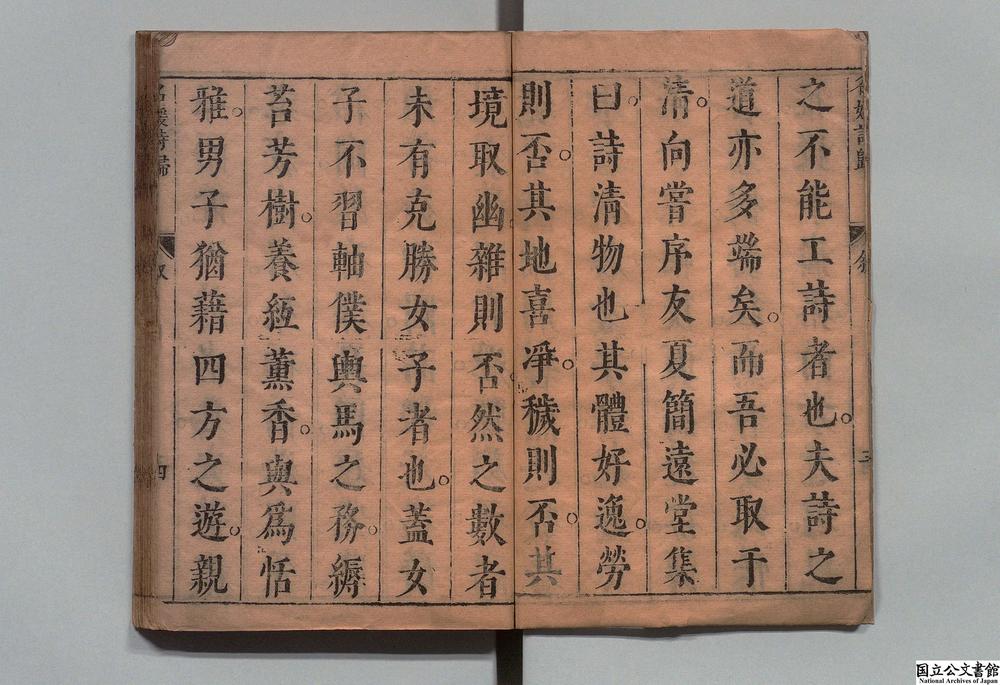 名媛詩歸
敘
三
之不能工詩者也。夫詩之
道亦多端矣。而吾必取于
清。向嘗序友夏簡遠堂集
曰。詩清物也其體好逸。勞
則否。其地喜淨。穢則否。其
境取幽雜則否然之數者
未有克勝女子者也。蓋女
子不習軸僕輿馬之務。縟
苔芳樹。養絚薰香。與爲恬
雅。男子猶藉四方之遊。親
名媛詩歸
叙
四
国立公文書館
National Archives of Japan